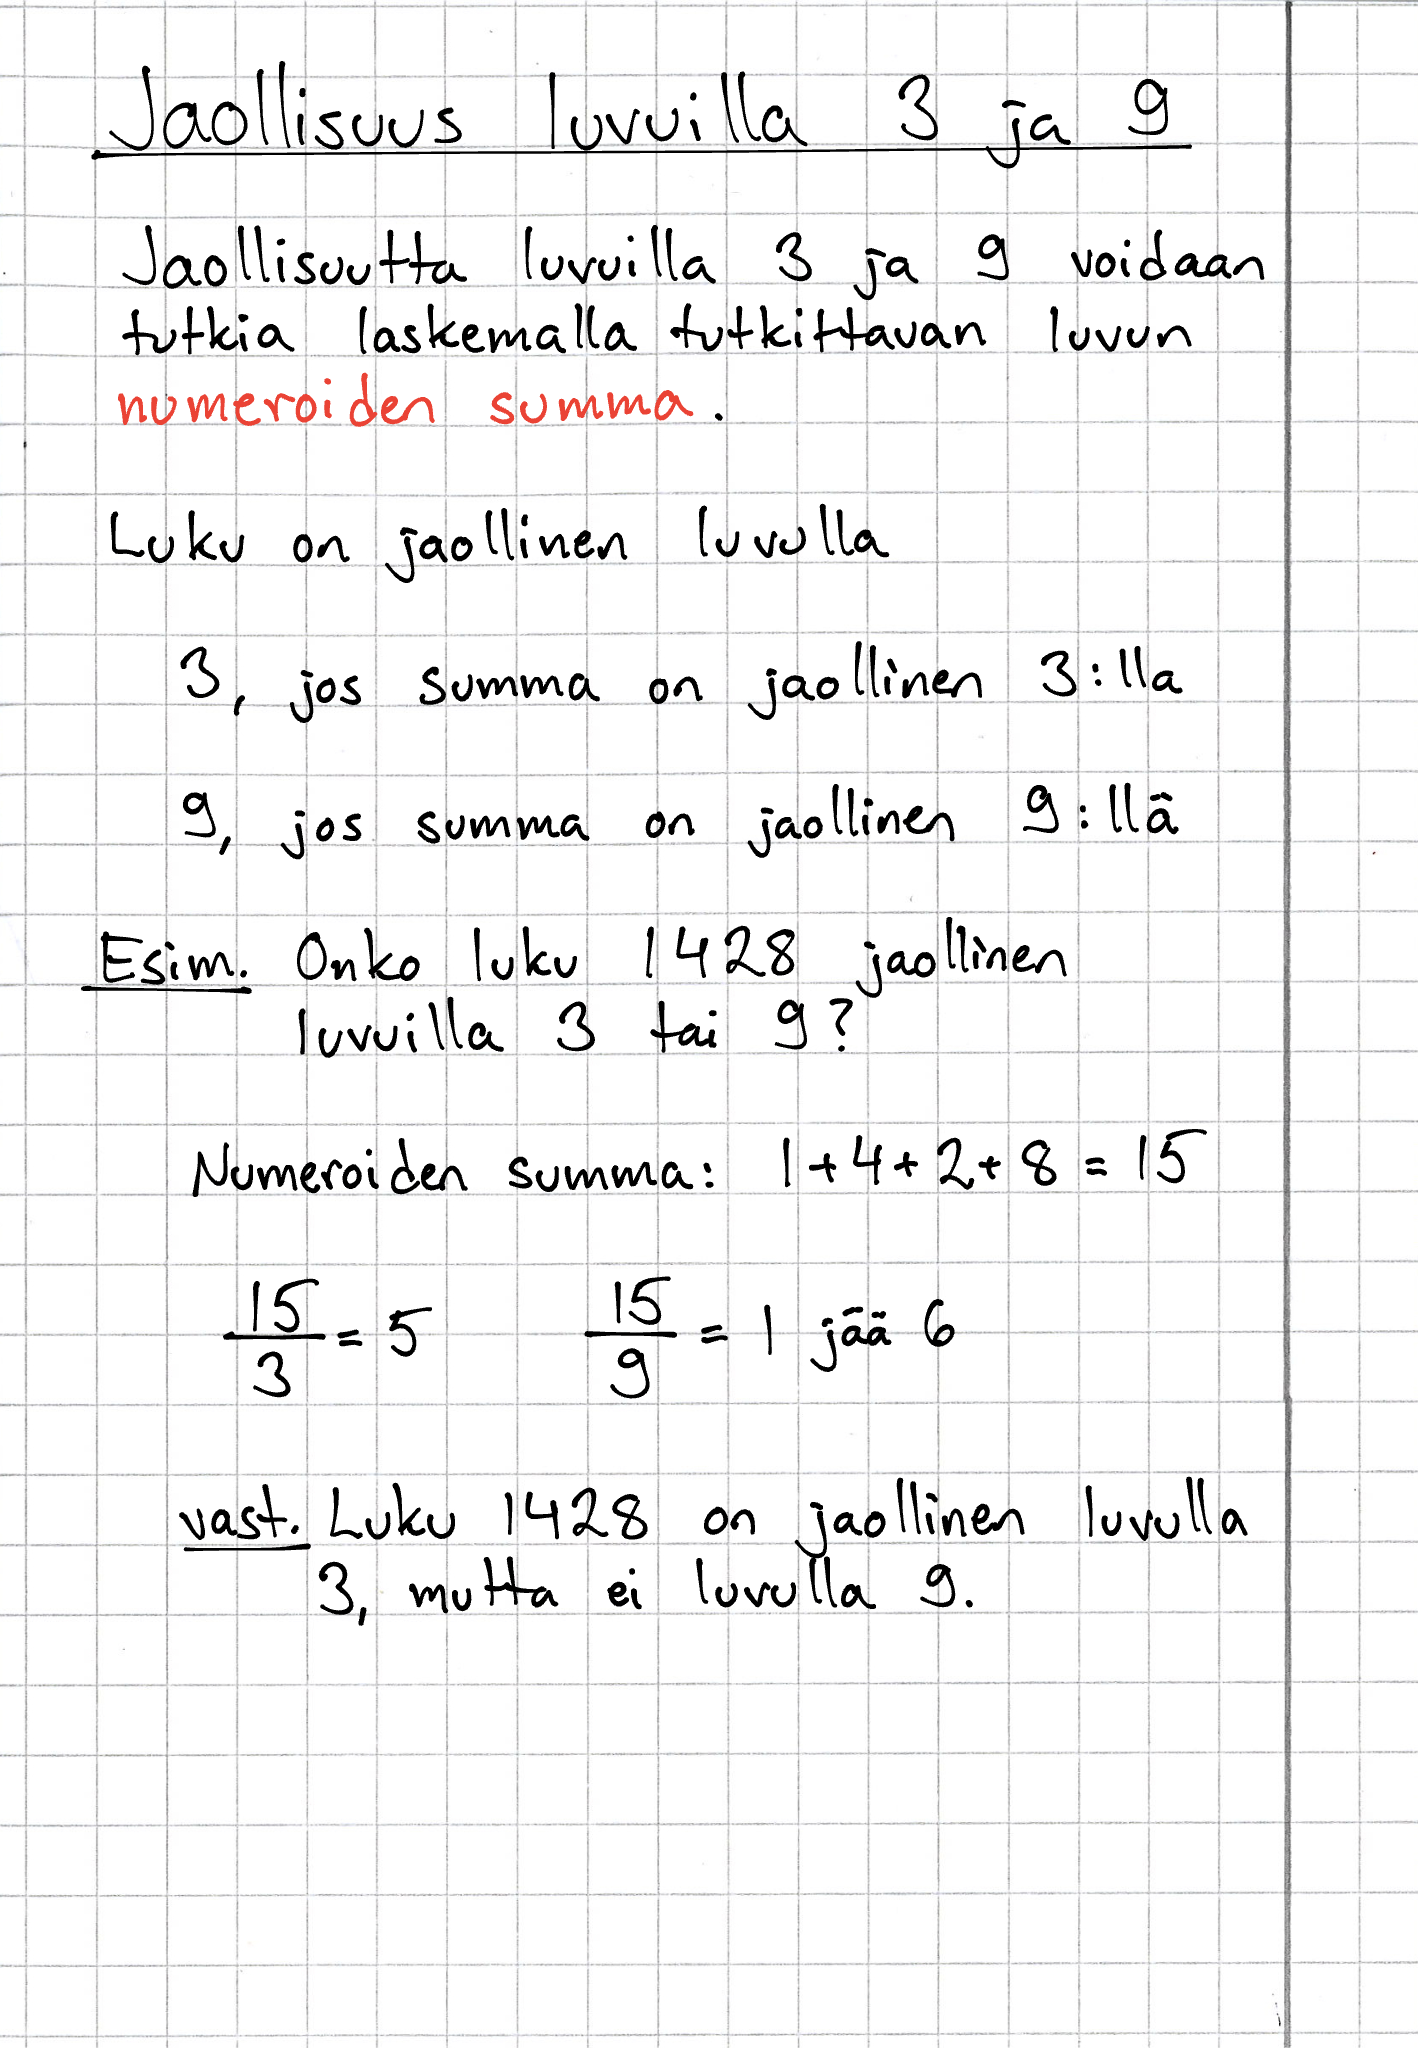 Jaollisuus luvuilla 3 ja 9
Jaollisuutta luvuilla 3 ja 9 voidaan
tutkia laskemalla tutkittavan luvun
numeroiden summa.
Luku on jaollinen luvulla
3, jos summa on jaollinen 3:lla
9, jos summa on jaollinen 9:llä
Esim. Onko luku 1428 jaollinen
luvuilla 3 tai 9?
Numeroiden summa: 1+4+2+8 = 15
15/3 = 5 15/9 = 1 jää 6
vast. Luku 1428 on jaollinen luvulla
3, mutta ei luvulla 9.